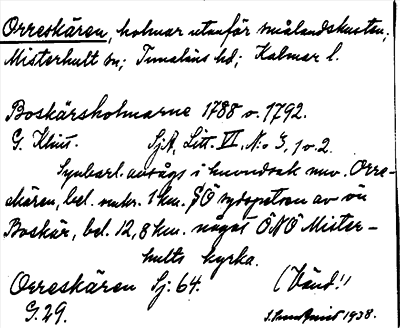 Orreskären, holmar utanför smålandskusten;
Misterhult sn; Tunaläns hd; Kalmar l.
Boskärsholmarne 1788 o. 1792.
G. Klint. SjA, Litt. VI, No 3, 1 o 2.
Synbarl. avsågs i huvudsak nuv. Orre-
skären, bel. omkr. 1 km. SÖ sydspetsen av ön
Boskär, bel. 12,8 km. något ÖNÖ Mister-
hults kyrka.
Orreskären Sj: 64. (Vänd!)
G. 29. 1938.